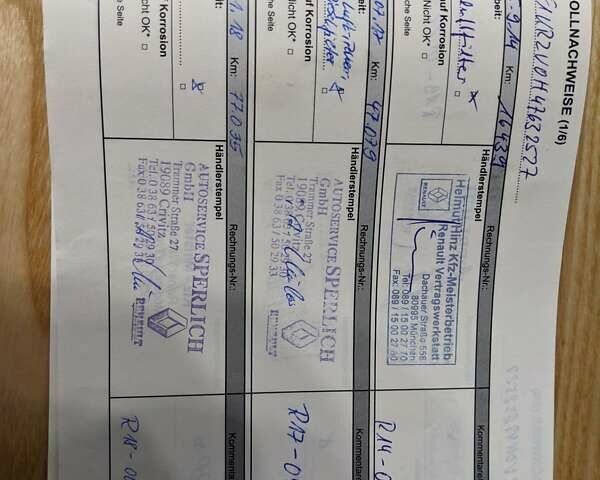 OLLNACHWEISE (1/6)
9.14 Km: 16439 Rechnungs-Nr.:
beit: Händlerstempel Kommentare
uf Korrosion
Nicht OK*
e Seite
Helmut Hinz Kfz-Meisterbetrieb
Renault Vertragswerkstatt
Dachauer Straße 556
80995 München
Tel. 089 / 15 00 27 70
Fax: 089 / 15 00 27 80
RENAULT
R14-0
07.17 Km: 47.079 Rechnungs-Nr.:
eit: Händlerstempel Kommentare
auf Korrosion
Nicht OK*
he Seite
AUTOSERVICE SPERLICH
GmbH
Trammer Straße 27
19089 Crivitz
Fax 0 38 63 / 50 29 33
RENAULT
R17-0
1.18 Km: 77.035 Rechnungs-Nr.:
eit: Händlerstempel Kommentare
f Korrosion
icht OK*
e Seite
AUTOSERVICE SPERLICH
GmbH
Trammer Straße 27
19089 Crivitz
Tel. 0 38 63 / 50 29 30
Fax 0 38 63 / 50 29 33
RENAULT
R18-0